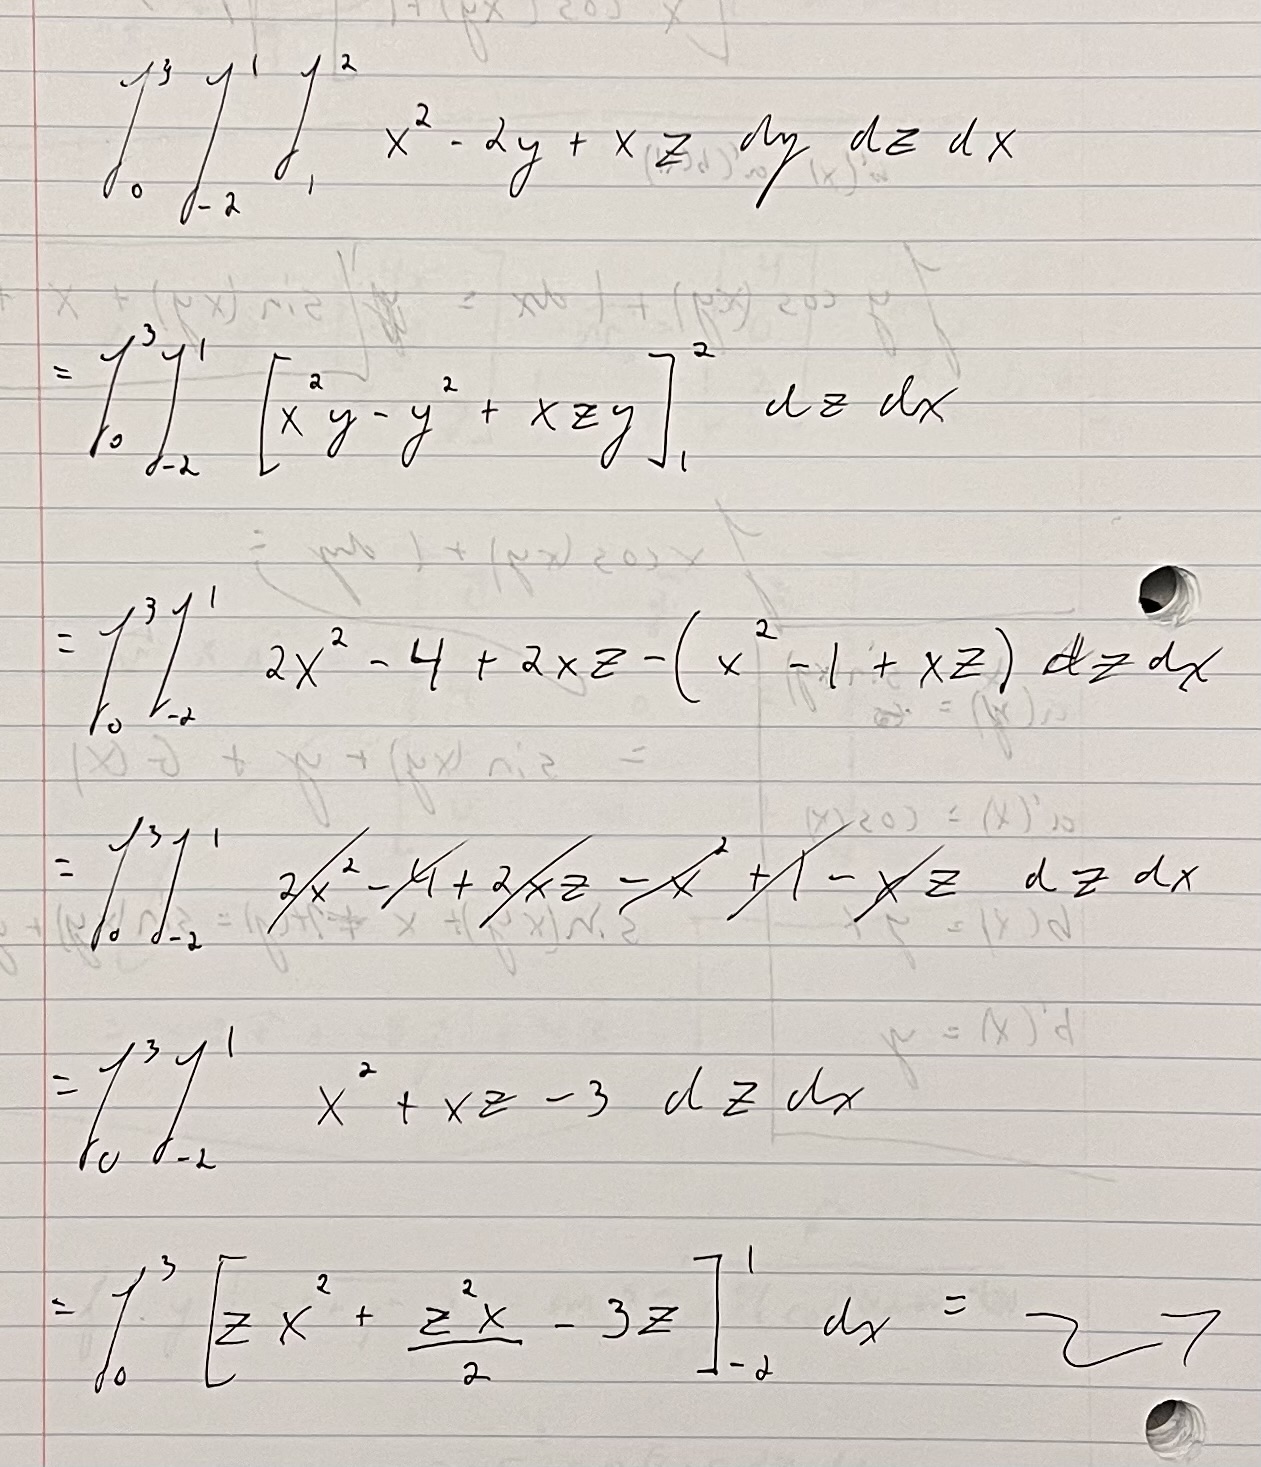 ∫₀³ ∫₋₂¹ ∫₁² x² - 2y + xz dy dz dx
= ∫₀³ ∫₋₂¹ [x²y - y² + xzy]₁² dz dx
= ∫₀³ ∫₋₂¹ 2x² - 4 + 2xz - (x² - 1 + xz) dz dx
= ∫₀³ ∫₋₂¹ 2x² - 4 + 2xz - x² + 1 - xz dz dx
= ∫₀³ ∫₋₂¹ x² + xz - 3 dz dx
= ∫₀³ [zx² + z²x/2 - 3z]₋₂¹ dx =